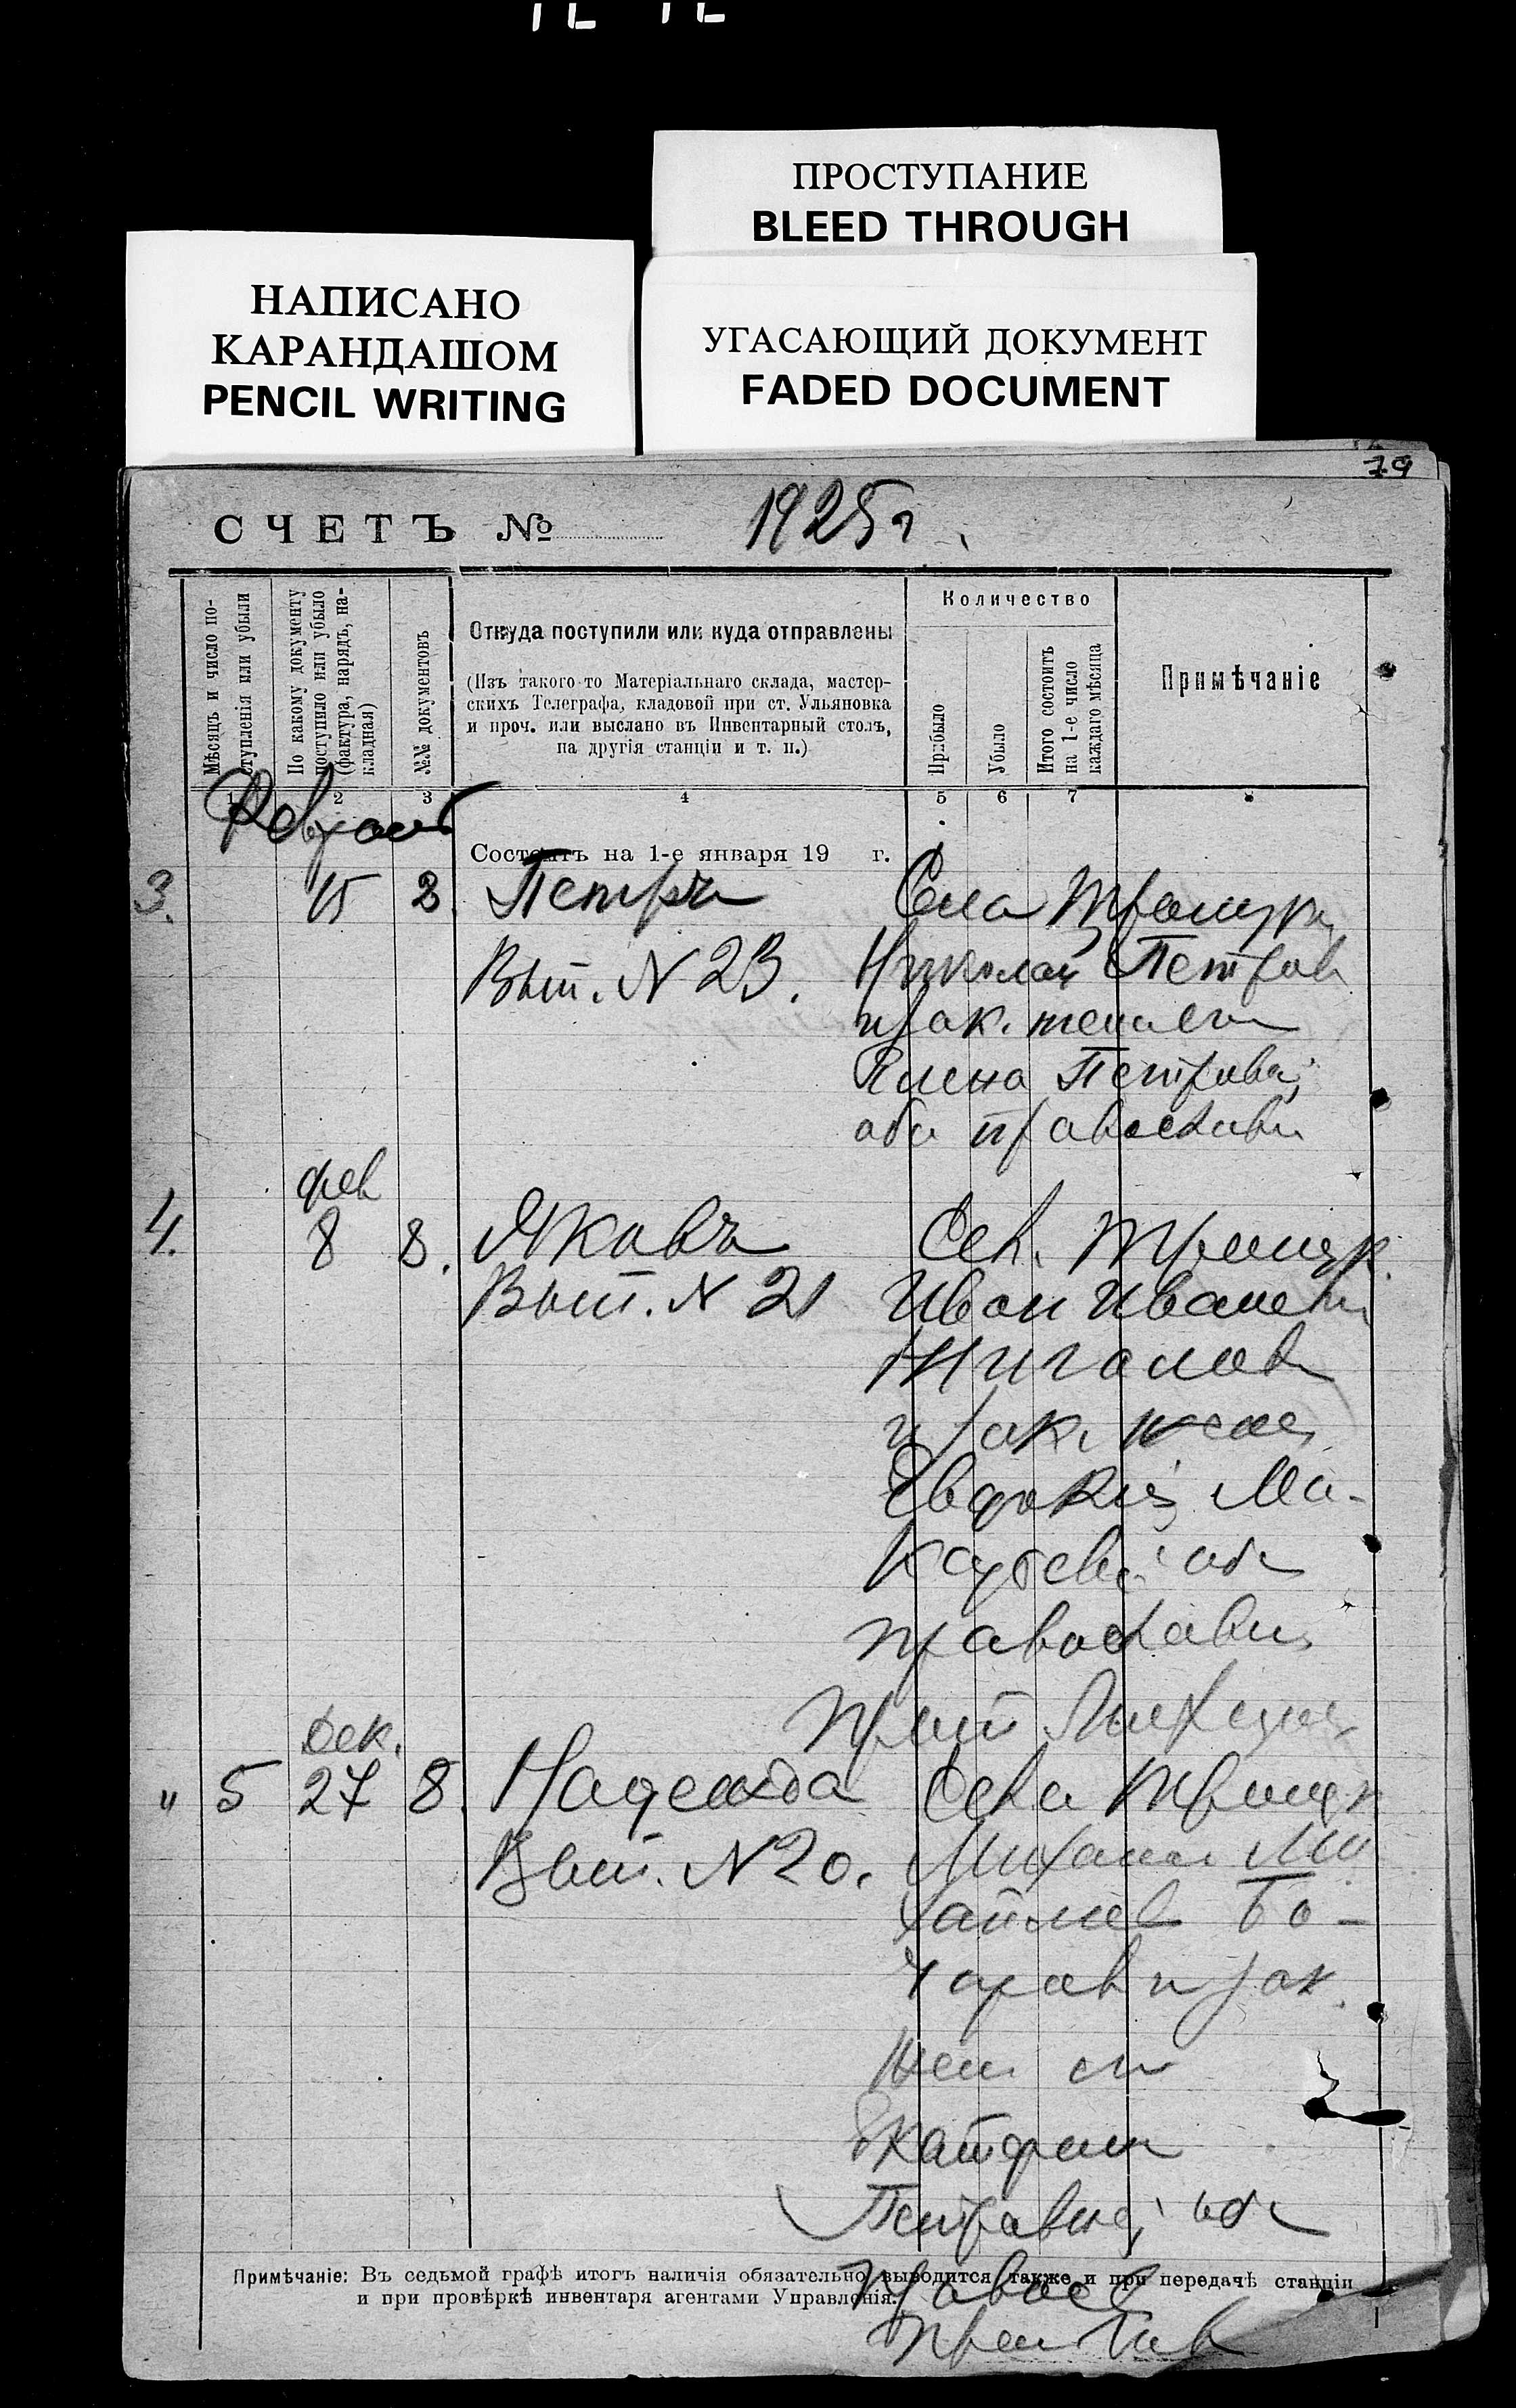 ПРОСТУПАНИЕ
BLEED THROUGH
НАПИСАНО
КАРАНДАШОМ
PENCIL WRITING
УГАСАЮЩИЙ ДОКУМЕНТ
FADED DOCUMENT
79
СЧЕТЪ №
1925 г.
Мѣсяцъ и число по-
ступленія или убыли
По какому документу
поступило или убыло
(фактура, нарядъ, на-
кладная)
№№ документовъ
Откуда поступили или куда отправлены
(Изъ такого-то Матеріальнаго склада, мастер-
скихъ Телеграфа, кладовой при ст. Ульяновка
и проч. или выслано въ Инвентарный столъ,
на другія станціи и т. п.)
Количество
Прибыло
Убыло
Итого состоитъ
на 1-е число
каждаго мѣсяца
Примѣчаніе
1 2 3 4 5 6 7 8
Февраль
Состоитъ на 1-е января 19 г.
3. 15 2. Петръ
Вып. N 23.
Села
Николай Петров
и зак. жена его
Елена Петровна;
оба православн
фев
4. 8 8. Яковъ
Вып. N 21
Сел.
Иван Иванов
Жигалов
и зак. жена
Евдокия Ма-
каровна; оба
православны
дек.
" 5 27 8. Надежда
Вып. N 20.
Села
Михаил Ми
хайлов Бо-
чаров и зак.
жена его
Екатерина
Петровна; оба
Примѣчаніе: Въ седьмой графѣ итогъ наличія обязательно выводится также и при передачѣ станціи
и при провѣркѣ инвентаря агентами Управленія.
правосл